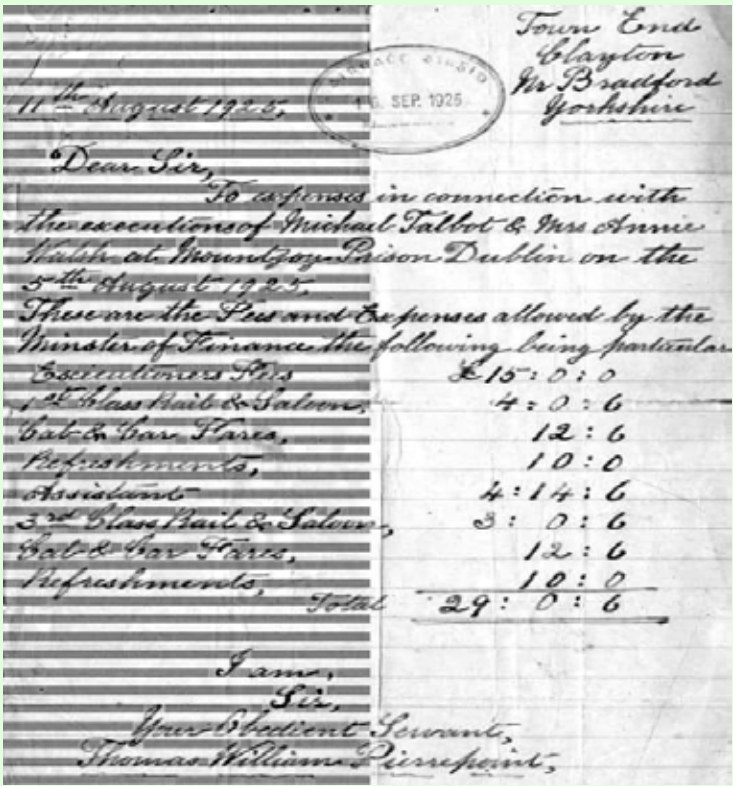 Town End
Clayton
Nr Bradford
Yorkshire
SEP. 1925
11th August 1925,
Dear Sir,
To expenses in connection with
the executions of Michael Talbot & Mrs Annie
Walsh at Mountjoy Prison Dublin on the
5th August 1925.
These are the Fees and Expenses allowed by the
Minster of Finance the following being particular
Executioners Fees £15:0:0
1st Class Rail & Saloon, 4:0:6
Cab & Car Fares, 12:6
Refreshments, 10:0
Assistant 4:14:6
3rd Class Rail & Saloon, 3:0:6
Cab & Car Fares, 12:6
Refreshments, 10:0
Total 29:0:6
I am,
Sir,
Your Obedient Servant,
Thomas William Pierrepoint,